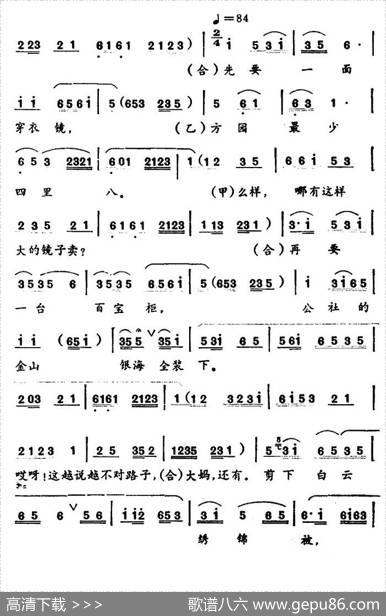 ♩=84
2 23 2 1 | 6161 2123) | 2/4 6 i | 5 3 i | 3 5 6 ·
(合)先要一面
i i 6 5 6 i | 5 (653 235) | 5 6 1 | 6 3 1 ·
穿衣镜, (乙)方园最少
6 5 3 2321 | 601 2123 | 1 (12 3 5 | 6 6 i 5 3
四里八。 (甲)么样, 哪有这样
2 3 5 2 1 | 6161 2123 | 1 13 231) | 3·i 5 3 i
大的镜子卖? (合)再要
3 535 6 | 3 535 656i | 5 (653 235) | i 3 i 6 5
一台百宝柜, 公社的
i i (65i) | 35 5 ∨ 35 i | 5 3 i 6 5 | 5 6 i 6 5 3 5
金山银海全装下。
2 03 2 1 | 6161 2123 | 1 (12 323i | 6i53 2 1
2123 1 | 2 5 352 | 1235 231) | 5 3 i 6 5 3 5
哎呀!这越说越不对路子,(合)大妈,还有。剪下白云
6 5 6 ∨ 5 6 | i i2 653 | 3 i 5 6 5 | 0 i 6i63
绣锦被,
高清下载 >>> 歌谱八六 www.gepu86.com